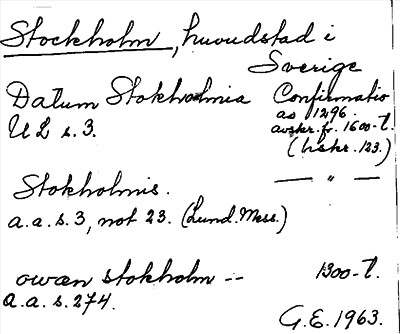 Stockholm, huvudstad i
Sverige
Datum Stokholmia Confirmatio
U L s. 3. as 1296
avskr. fr. 1600-t.
(hskr. 123.)
Stokholmis. — " —
a.a. s. 3, not 23. (Lund. Mess.)
owan stokholm -- 1300-t.
a.a. s. 274.
G.E. 1963.